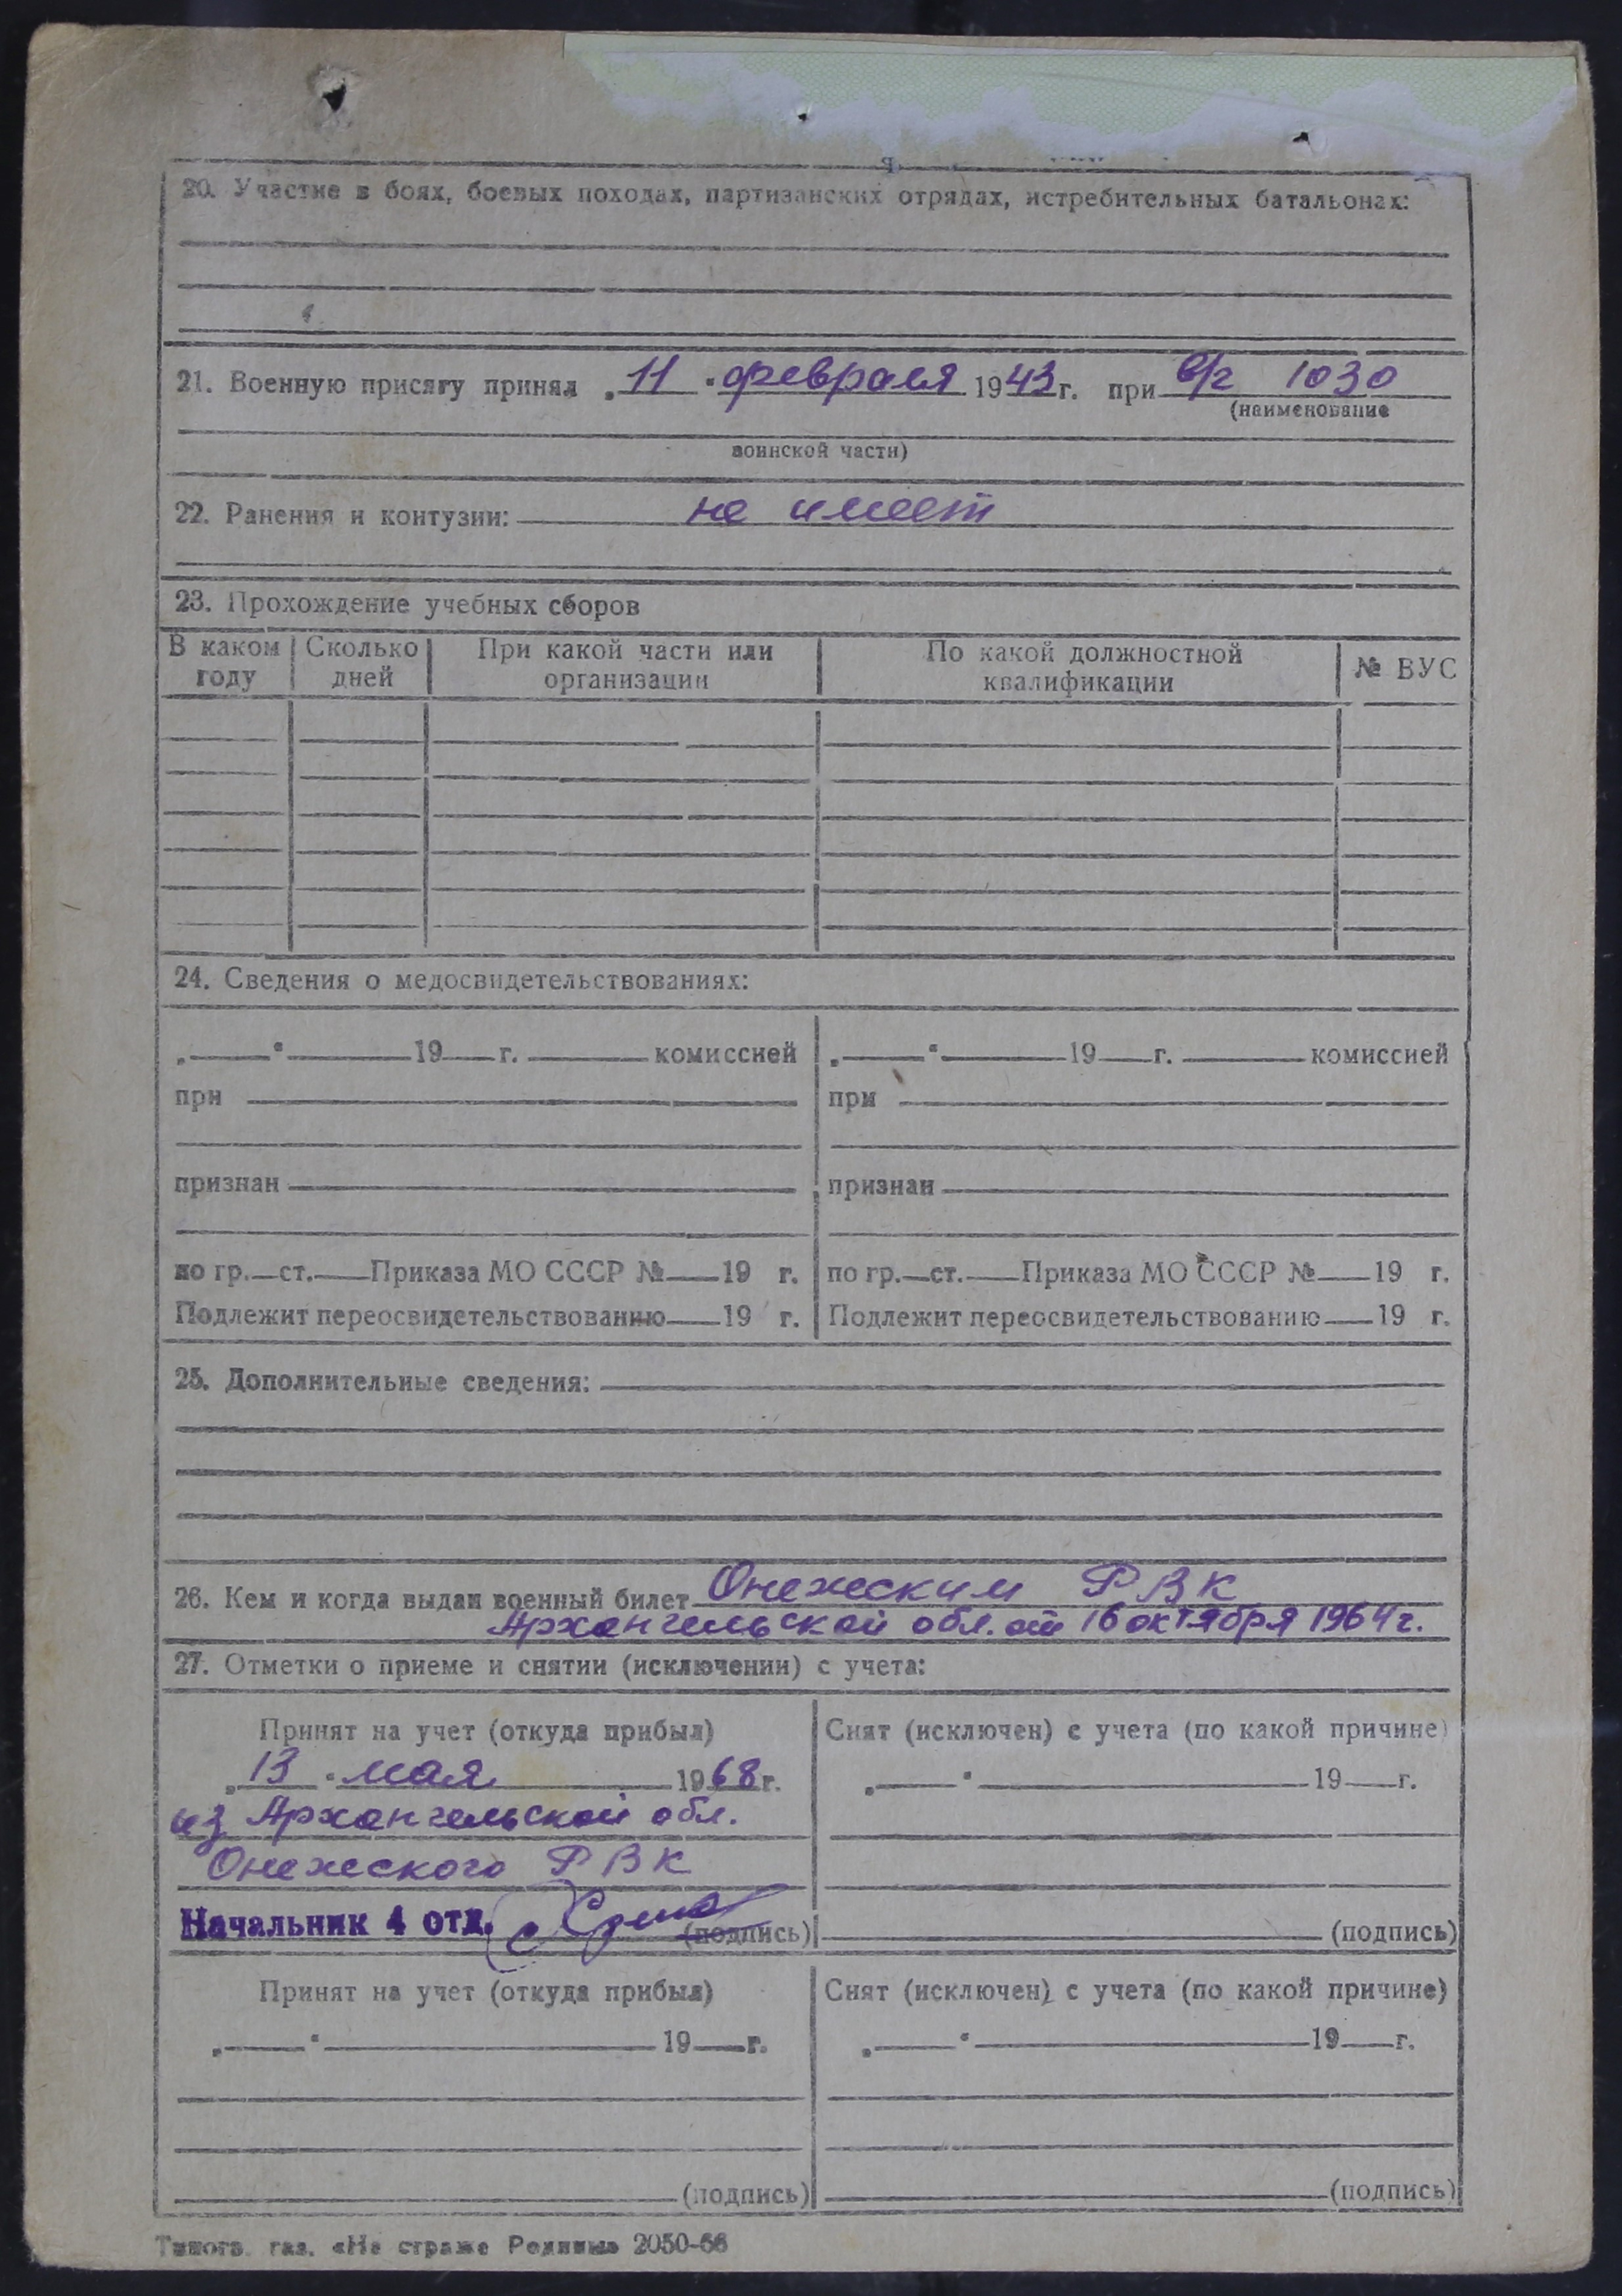 20. Участие в боях, боевых походах, партизанских отрядах, истребительных батальонах:
21. Военную присягу принял „11“ февраля 1943 г. при в/ч 1030
(наименование
воинской части)
22. Ранения и контузии: не имеет
23. Прохождение учебных сборов
В каком году | Сколько дней | При какой части или организации | По какой должностной квалификации | № ВУС
24. Сведения о медосвидетельствованиях:
„ “ 19 г. комиссией | „ “ 19 г. комиссией
при | при
признан | признан
по гр. ст. Приказа МО СССР № 19 г. | по гр. ст. Приказа МО СССР № 19 г.
Подлежит переосвидетельствованию 19 г. | Подлежит переосвидетельствованию 19 г.
25. Дополнительные сведения:
26. Кем и когда выдан военный билет Онежским РВК
Архангельской обл. от 16 октября 1964 г.
27. Отметки о приеме и снятии (исключении) с учета:
Принят на учет (откуда прибыл) | Снят (исключен) с учета (по какой причине)
„13“ мая 1968 г. | „ “ 19 г.
из Архангельской обл.
Онежского РВК
Начальник 4 отд. (подпись) | (подпись)
Принят на учет (откуда прибыл) | Снят (исключен) с учета (по какой причине)
„ “ 19 г. | „ “ 19 г.
(подпись) | (подпись)
Типогр. газ. «На страже Родины» 2050-66